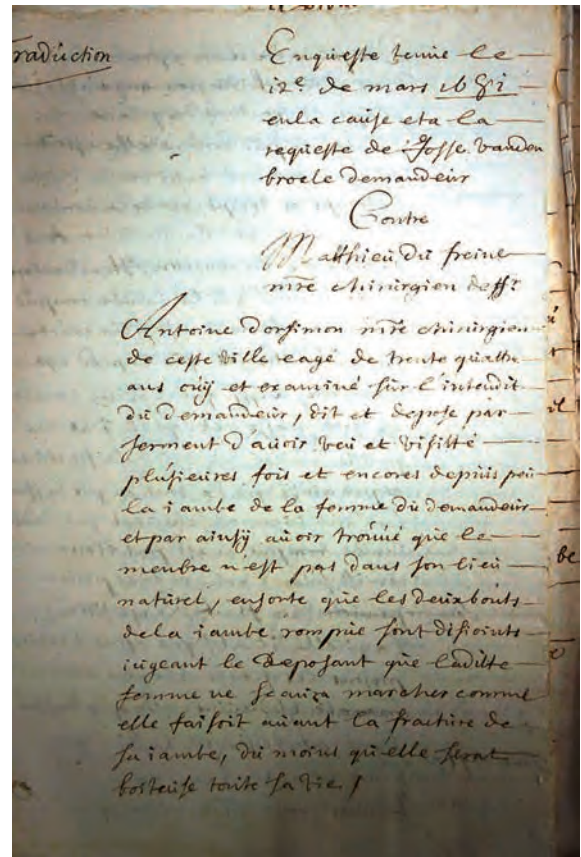 raduction
Enqueste tenue le
12e. de mars 1681
en la cause et a la
requeste de Josse vanden
broele demandeur
Contre
Matthieu du freine
mre chirurgien deffr.
Antoine dorsimon mre chirurgien
de ceste ville eagé de trente quattre
ans ouÿ et examiné sur l'intendit
du demandeur, dit et depose par
serment d'avoir veu et visitté
plusieures fois et encores depuis peu
la iambe de la femme du demandeur
et par ainsÿ avoir trouvé que le
membre n'est pas dans son lieu
naturel, ensorte que les deux bouts
de la iambe rompüe sont disioints
iugeant le Deposant que laditte
femme ne scaura marcher comme
elle faisoit avant la fracture de
sa iambe, du moins qu'elle serat
boiteuse toute sa vie /
il
be